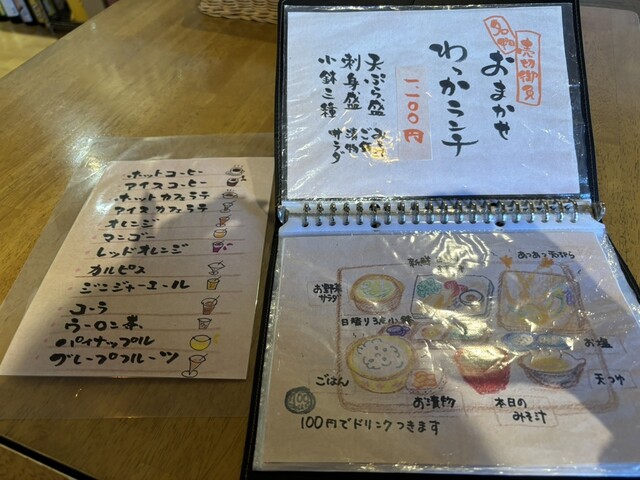 ホットコーヒー
アイスコーヒー
ホットカフェラテ
アイスカフェラテ
オレンジ
マンゴー
レッドオレンジ
カルピス
ジンジャーエール
コーラ
ウーロン茶
パイナップル
グレープフルーツ
名物
売切御免
おまかせ
わっかランチ
1.100円
天ぷら盛
刺身盛
小鉢三種
みそ汁
ごはん
漬物
サラダ
新鮮
あつあつ天ぷら
お野菜
サラダ
日替り3種小鉢
お塩
ごはん
お漬物
本日の
みそ汁
天つゆ
100
100円でドリンクつきます